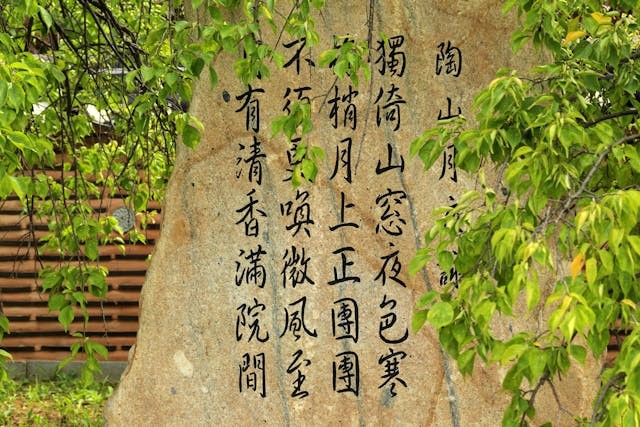 陶山月
獨倚山窓夜色寒
梢月上正團團
不須更喚微風至
有清香滿院間